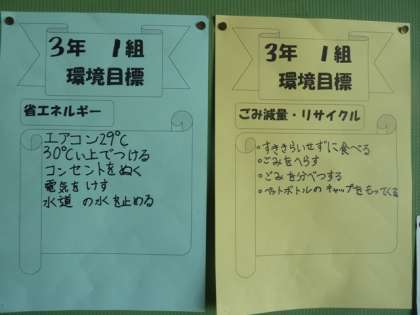 3年 1組
環境目標
省エネルギー
エアコン29℃
30℃以上でつける
コンセントをぬく
電気をけす
水道の水を止める
3年 1組
環境目標
ごみ減量・リサイクル
・すききらいせずに食べる
・ごみをへらす
・ごみを分べつする
・ペットボトルのキャップをもってくる